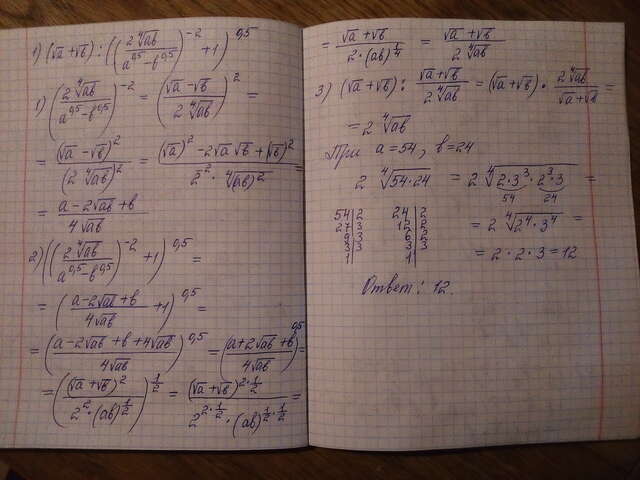 1) (√a + √b) : ((2∜ab / a^0,5 − b^0,5)^−2 + 1)^0,5
1) (2∜ab / a^0,5 − b^0,5)^−2 = (√a − √b / 2∜ab)^2 =
= (√a − √b)^2 / (2∜ab)^2 = (√a)^2 − 2√a√b + (√b)^2 / 2^2 · ∜(ab)^2 =
= a − 2√ab + b / 4√ab
2) ((2∜ab / a^0,5 − b^0,5)^−2 + 1)^0,5 =
= (a − 2√ab + b / 4√ab + 1)^0,5 =
= (a − 2√ab + b + 4√ab / 4√ab)^0,5 = (a + 2√ab + b / 4√ab)^0,5 =
= ((√a + √b)^2 / 2^2 · (ab)^1/2)^1/2 = (√a + √b)^2·1/2 / 2^2·1/2 · (ab)^1/2·1/2 =
= √a + √b / 2 · (ab)^1/4 = √a + √b / 2∜ab
3) (√a + √b) : √a + √b / 2∜ab = (√a + √b) · 2∜ab / √a + √b =
= 2∜ab
При a = 54, b = 24
2∜54·24 = 2∜2·3^3·2^3·3 =
54 24
54|2 24|2
27|3 12|2
9|3 6|2
3|3 3|3
1| 1|
= 2∜2^4·3^4 =
= 2 · 2 · 3 = 12
Ответ: 12.